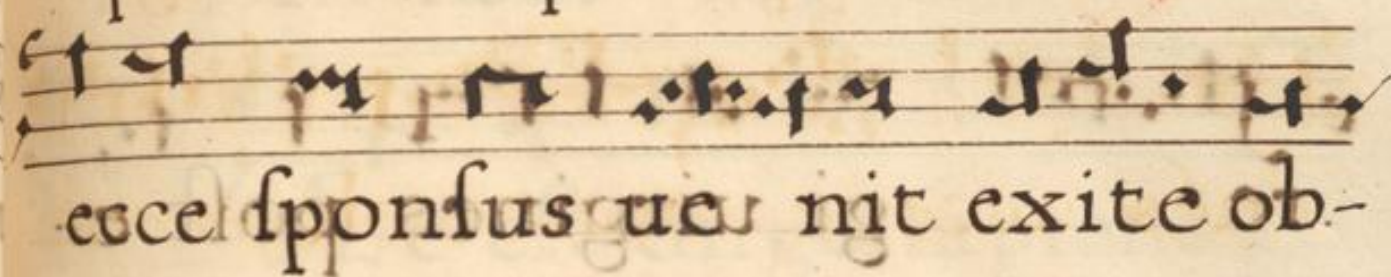 ecce ſponſus ue nit exite ob-